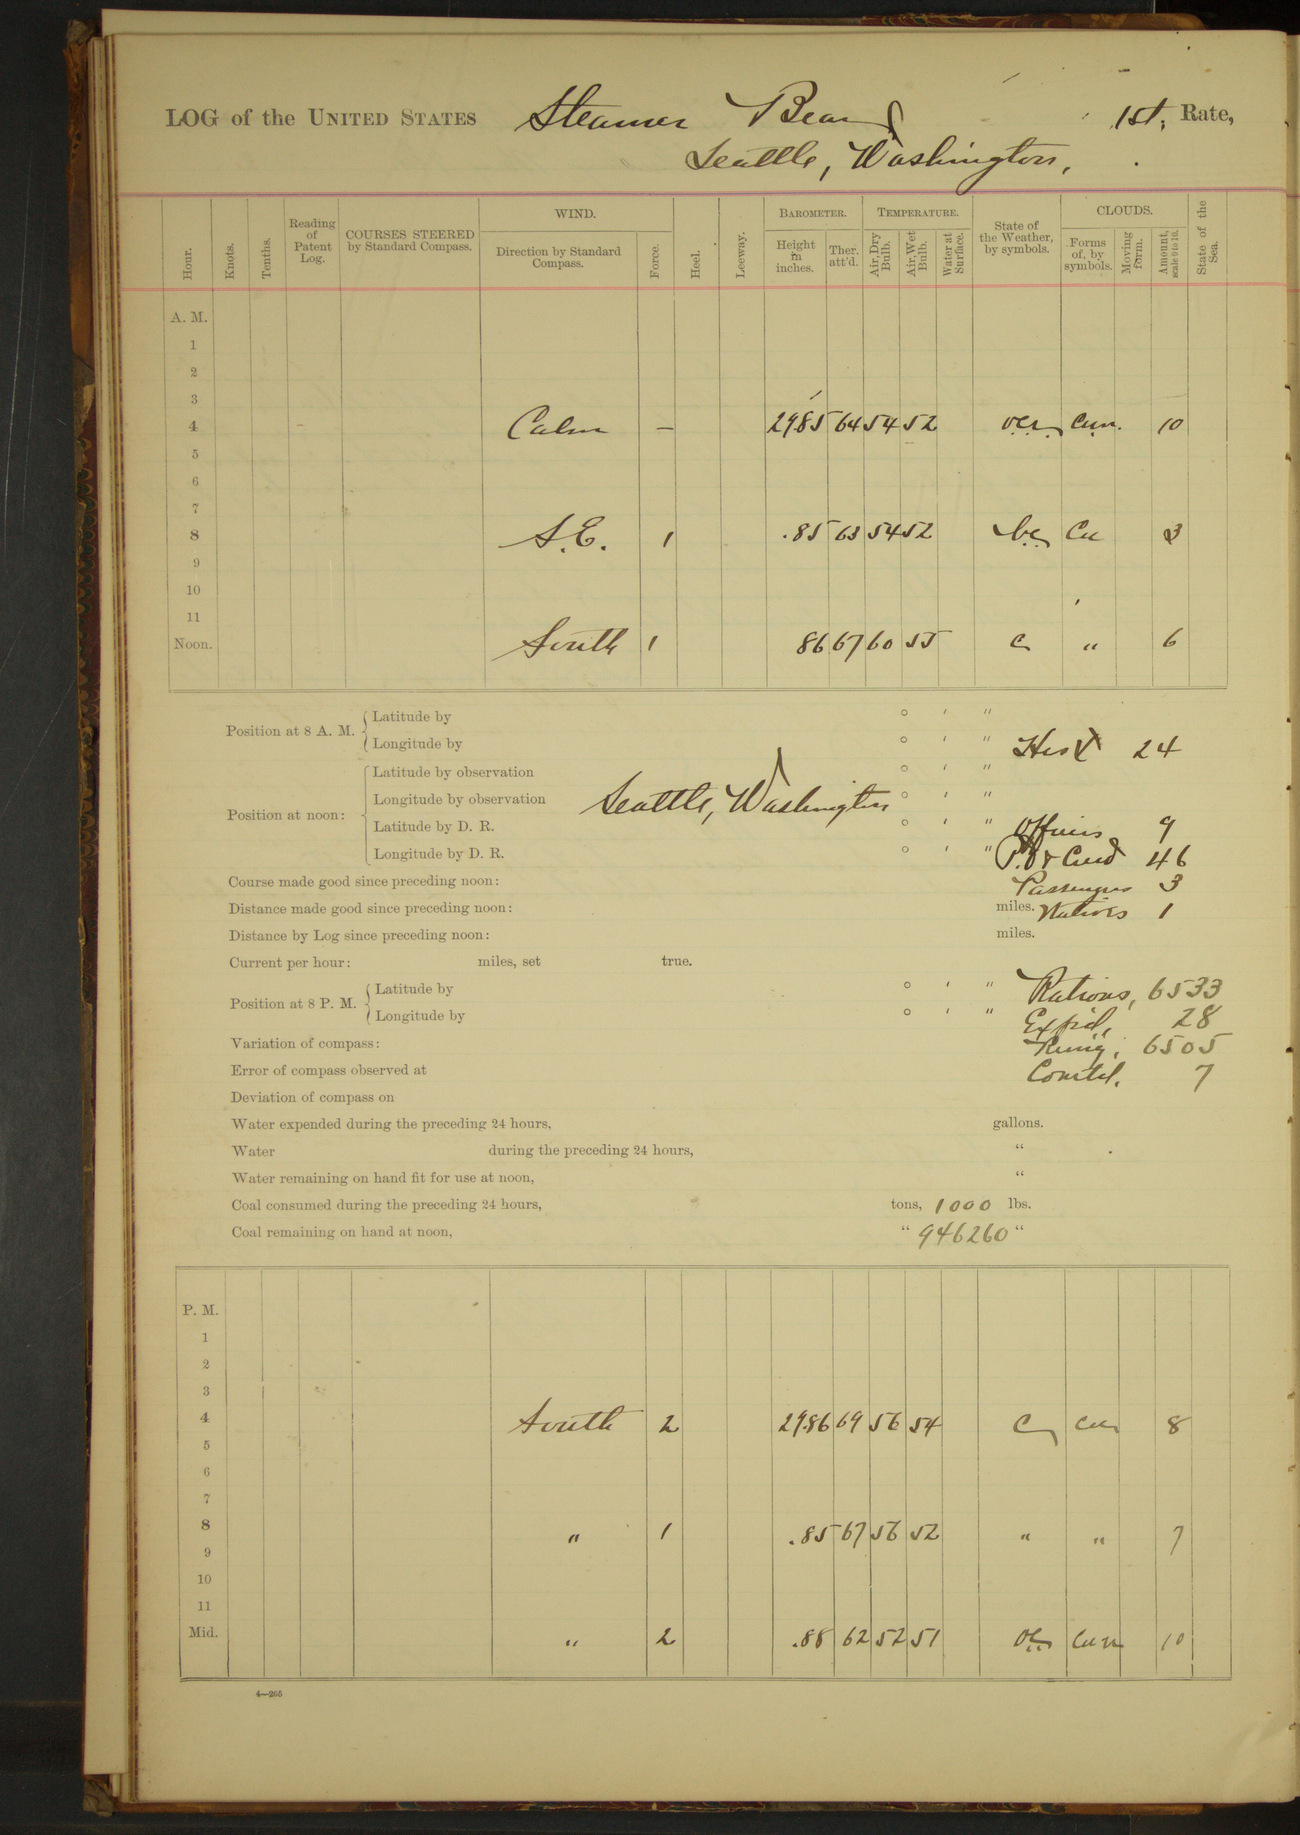 LOG of the UNITED STATES Steamer Bear, 1st. Rate,
Seattle, Washington,
Hour. Knots. Tenths. Reading of Patent Log. COURSES STEERED by Standard Compass. WIND. Direction by Standard Compass. Force. Heel. Leeway. BAROMETER. Height in inches. Ther. att'd. TEMPERATURE. Air, Dry Bulb. Air, Wet Bulb. Water at Surface. State of the Weather, by symbols. CLOUDS. Forms of, by symbols. Moving form. Amount, scale 0 to 10. State of the Sea.
A. M.
1
2
3
4 Calm – 2985 64 54 52 cum. 10
5
6
7
8 S.E. 1 .85 63 54 52 b.c. Cu 3
9
10
11
Noon. South 1 86 67 60 55 c " 6
Position at 8 A. M. { Latitude by ° ' "
Longitude by ° ' " 24
Position at noon: { Latitude by observation ° ' "
Longitude by observation Seattle, Washington ° ' "
Latitude by D. R. ° ' " Officers 9
Longitude by D. R. ° ' " 46
Course made good since preceding noon: Passengers 3
Distance made good since preceding noon: miles. Natives 1
Distance by Log since preceding noon: miles.
Current per hour: miles, set true.
Position at 8 P. M. { Latitude by ° ' " Rations, 6533
Longitude by ° ' " Expid, 28
Variation of compass: 6505
Error of compass observed at 7
Deviation of compass on
Water expended during the preceding 24 hours, gallons.
Water during the preceding 24 hours, "
Water remaining on hand fit for use at noon, "
Coal consumed during the preceding 24 hours, tons, 1000 lbs.
Coal remaining on hand at noon, " 946260 "
P. M.
1
2
3
4 South 2 29.86 69 56 54 c cu 8
5
6
7
8 " 1 .85 67 56 52 " " 7
9
10
11
Mid. " 2 .88 62 52 51 oc cum 10
4—265